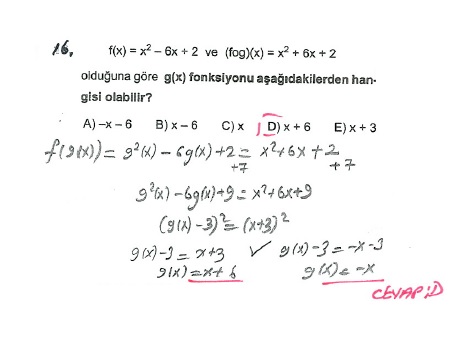 16. f(x) = x² – 6x + 2 ve (fog)(x) = x² + 6x + 2
olduğuna göre g(x) fonksiyonu aşağıdakilerden han-
gisi olabilir?
A) –x – 6 B) x – 6 C) x D) x + 6 E) x + 3
f(g(x)) = g²(x) – 6g(x) + 2 = x² + 6x + 2
+7 +7
g²(x) – 6g(x) + 9 = x² + 6x + 9
(g(x) – 3)² = (x+3)²
g(x) – 3 = x + 3 ✓ g(x) – 3 = –x – 3
g(x) = x + 6 g(x) = –x
CEVAP: D